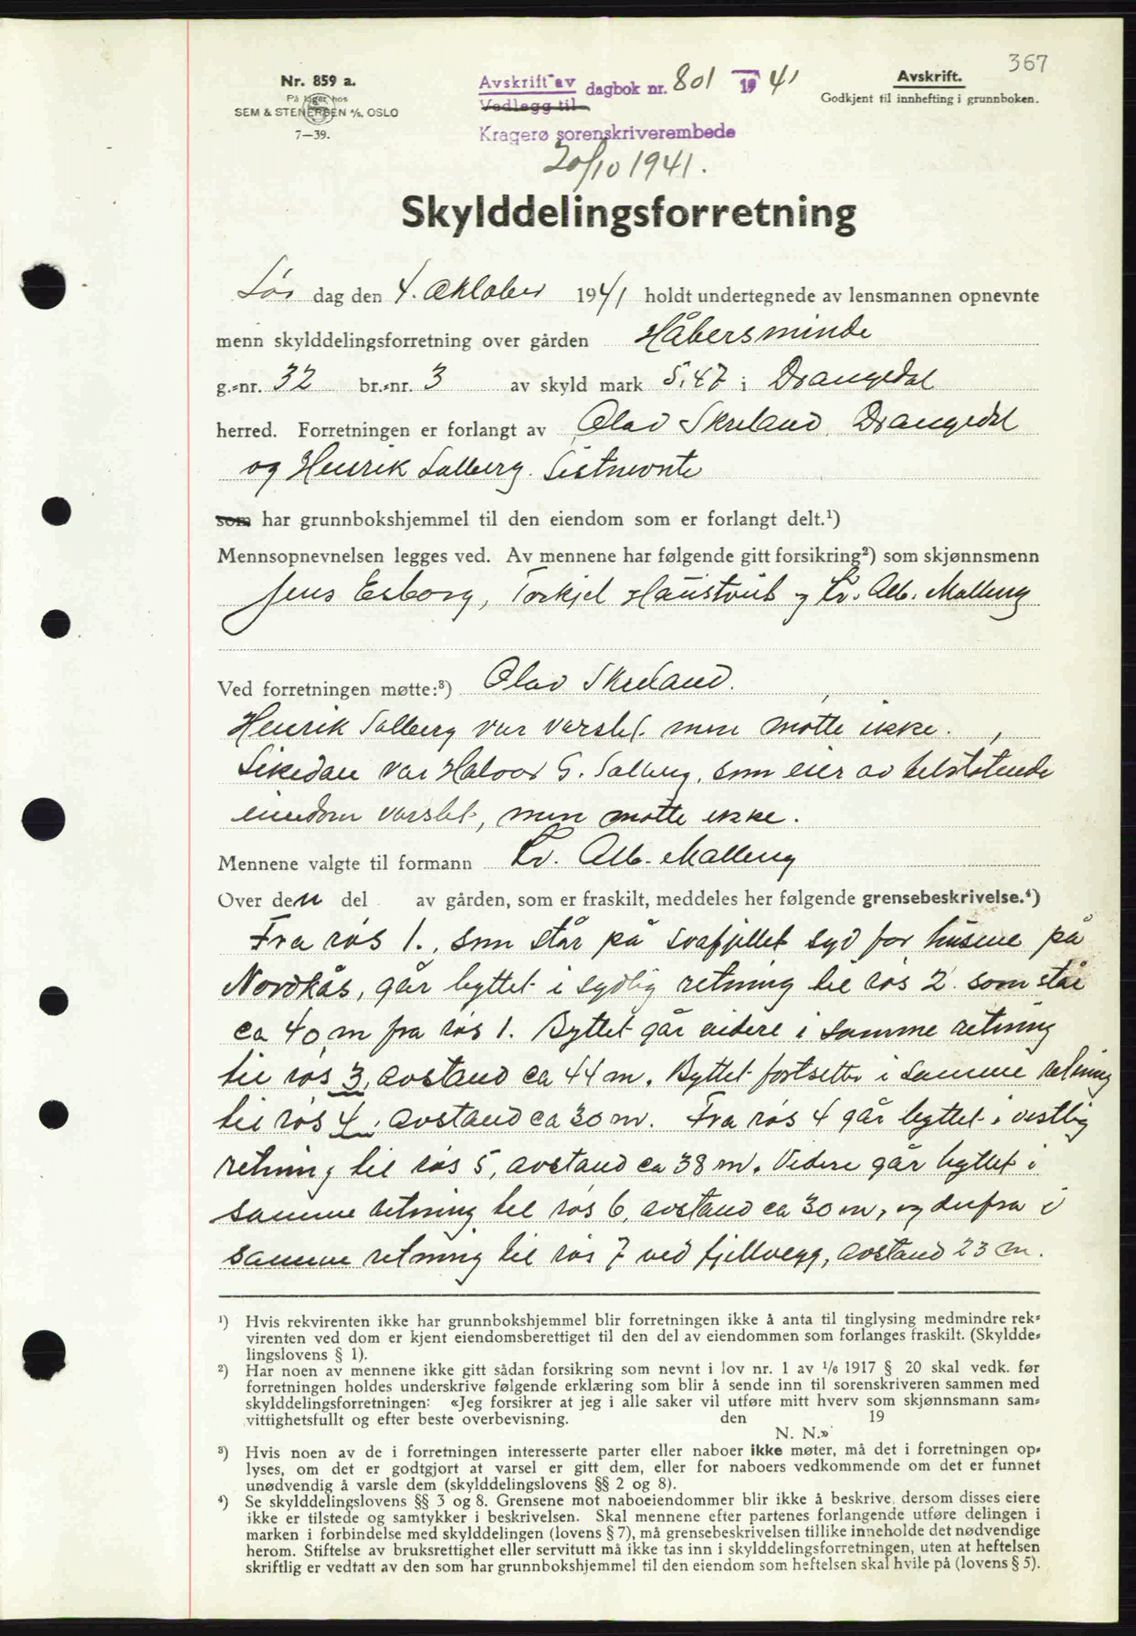 367
Nr. 859 a.
På lager hos
SEM & STENERSEN A/S. OSLO
7—39.
Avskrift av dagbok nr. 801 1941
Vedlegg til
Kragerø sorenskriverembede
20/10 1941.
Avskrift.
Godkjent til innhefting i grunnboken.
Skylddelingsforretning
Lør dag den 4. oktober 1941 holdt undertegnede av lensmannen opnevnte
menn skylddelingsforretning over gården Håbersminde
g.-nr. 32 br.-nr. 3 av skyld mark 5,47 i Drangedal
herred. Forretningen er forlangt av Olav Skreland, Drangedal
og Henrik Solberg. Sistnevnte
som har grunnbokshjemmel til den eiendom som er forlangt delt.¹)
Mennsopnevnelsen legges ved. Av mennene har følgende gitt forsikring²) som skjønnsmenn
Jens Esborg, Torkjel og Kr. Alb. Malling
Ved forretningen møtte:³) Olav Skreland.
Henrik Solberg var varslet. men møtte ikke.
Likedan var Halvor G. Solberg, som eier av tilstøtende
eiendom varslet, men møtte ikke.
Mennene valgte til formann Kr. Alb. Malling
Over den del av gården, som er fraskilt, meddeles her følgende grensebeskrivelse.⁴)
Fra røs 1., som står på svafjellet syd for husene på
Nordkås, går byttet i sydlig retning til røs 2. som står
ca 40 m fra røs 1. Byttet går videre i samme retning
til røs 3, avstand ca 44 m. Byttet fortsetter i samme retning
til røs 4, avstand ca 30 m. Fra røs 4 går byttet i vestlig
retning til røs 5, avstand ca 38 m. Videre går byttet i
samme retning til røs 6, avstand ca 30 m, og derfra i
samme retning til røs 7 ved fjellvegg, avstand 23 m.
¹) Hvis rekvirenten ikke har grunnbokshjemmel blir forretningen ikke å anta til tinglysing medmindre rek-
virenten ved dom er kjent eiendomsberettiget til den del av eiendommen som forlanges fraskilt. (Skyldde-
lingslovens § 1).
²) Har noen av mennene ikke gitt sådan forsikring som nevnt i lov nr. 1 av 1/6 1917 § 20 skal vedk. før
forretningen holdes underskrive følgende erklæring som blir å sende inn til sorenskriveren sammen med
skylddelingsforretningen: «Jeg forsikrer at jeg i alle saker vil utføre mitt hverv som skjønnsmann sam-
vittighetsfullt og efter beste overbevisning. den 19
N. N.»
³) Hvis noen av de i forretningen interesserte parter eller naboer ikke møter, må det i forretningen op-
lyses, om det er godtgjort at varsel er gitt dem, eller for naboers vedkommende om det er funnet
unødvendig å varsle dem (skylddelingslovens §§ 2 og 8).
⁴) Se skylddelingslovens §§ 3 og 8. Grensene mot naboeiendommer blir ikke å beskrive, dersom disses eiere
ikke er tilstede og samtykker i beskrivelsen. Skal mennene efter partenes forlangende utføre delingen i
marken i forbindelse med skylddelingen (lovens § 7), må grensebeskrivelsen tillike inneholde det nødvendige
herom. Stiftelse av bruksrettighet eller servitutt må ikke tas inn i skylddelingsforretningen, uten at heftelsen
skriftlig er vedtatt av den som har grunnbokshjemmel til den eiendom som heftelsen skal hvile på (lovens § 5).